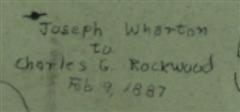 Joseph Wharton
to
Charles G. Rockwood
Feb 9, 1887